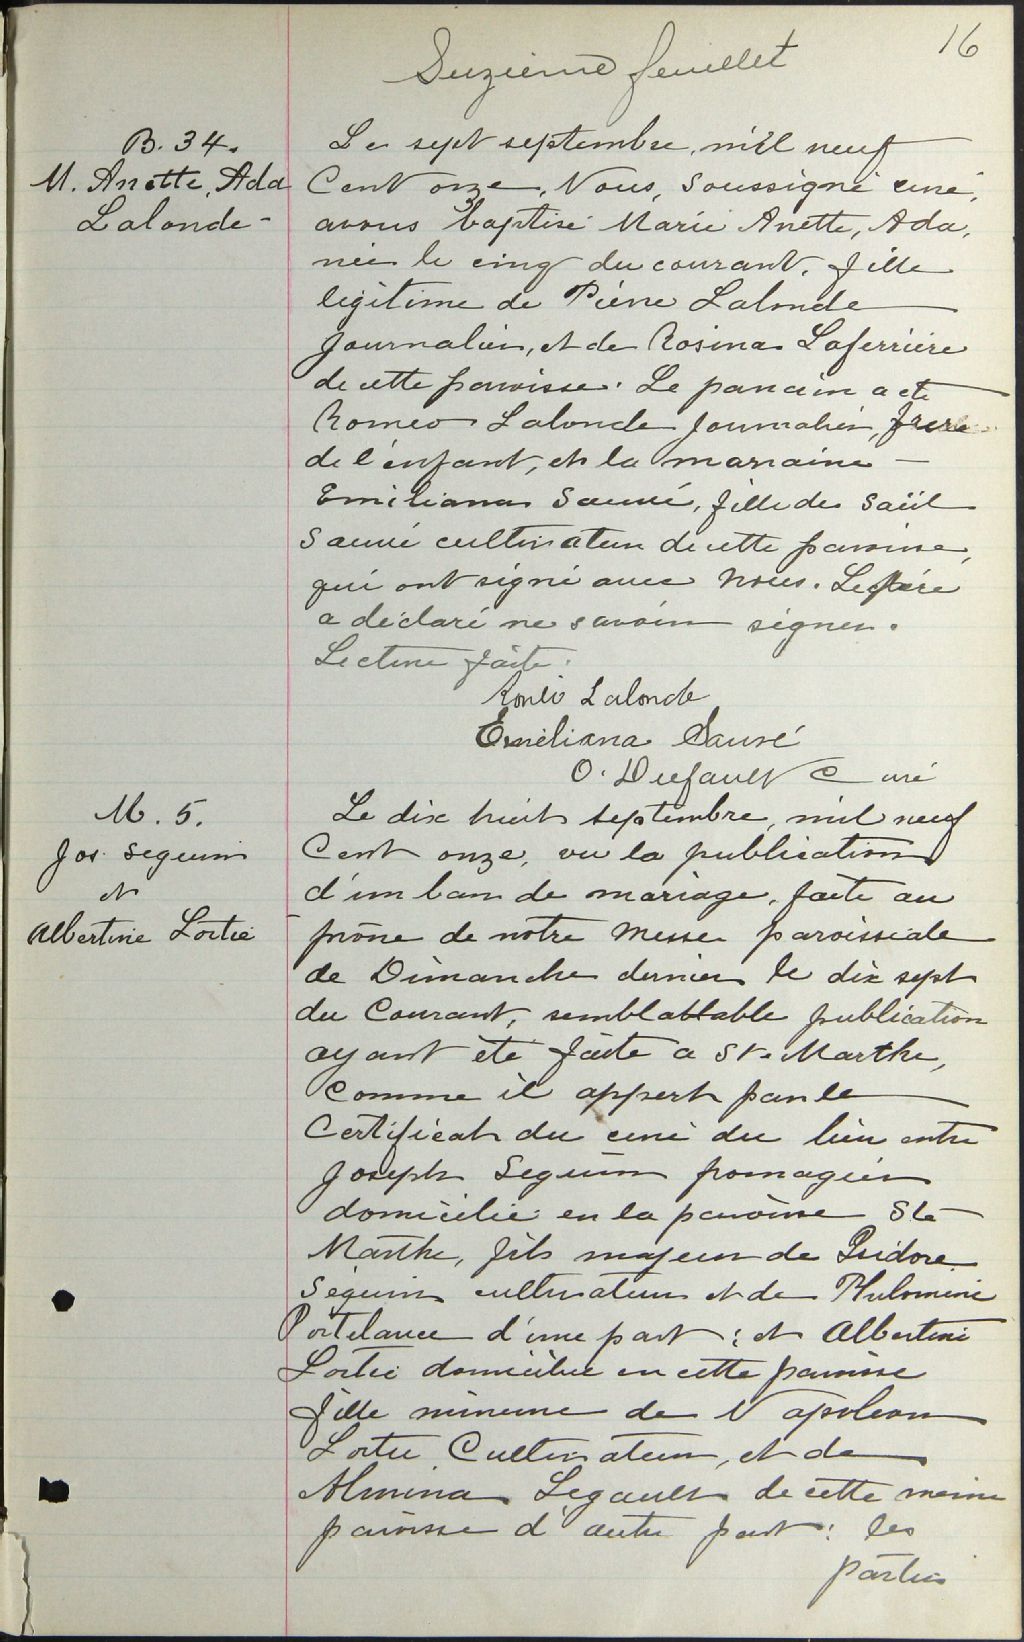 16
Suzième feuillet
B. 34.
M. Anette, Ada
Lalonde -
Le sept septembre, mil neuf
Cent onze, Nous, soussigné curé,
avons baptisé Marie Anette, Ada,
née le cinq du courant, fille
légitime de Pierre Lalonde
journalier, et de Rosina Laferrière
de cette paroisse. Le parrain a été
Romeo Lalonde journalier, frère
de l'enfant, et la marraine -
Emiliana Sauvé, fille de Saül
Sauvé cultivateur de cette paroisse,
qui ont signé avec Nous. Le père
a déclaré ne savoir signer.
Lecture faite.
Roméo Lalonde
Eméliana Sauvé
O. Dufault Curé
M. 5.
Jos. Seguin
et
Albertine Lortie
Le dix huit septembre, mil neuf
Cent onze, vu la publication
d'un ban de mariage, faite au
prône de notre Messe paroissiale
de Dimanche dernier le dix sept
du Courant, semblattable publication
ayant été faite a Ste Marthe,
comme il appert par le
Certificat du curé du lieu entre
Joseph Seguin fromagier
domicilié en la paroisse Ste
Marthe, fils majeur de Isidore
Séguin cultivateur et de Philomène
Portelance d'une part ; et Albertine
Lortie domiciliée en cette paroisse
fille mineure de Napoleon
Lortie Cultivateur, et de
Almina Legault de cette même
paroisse d'autre part : les
parties